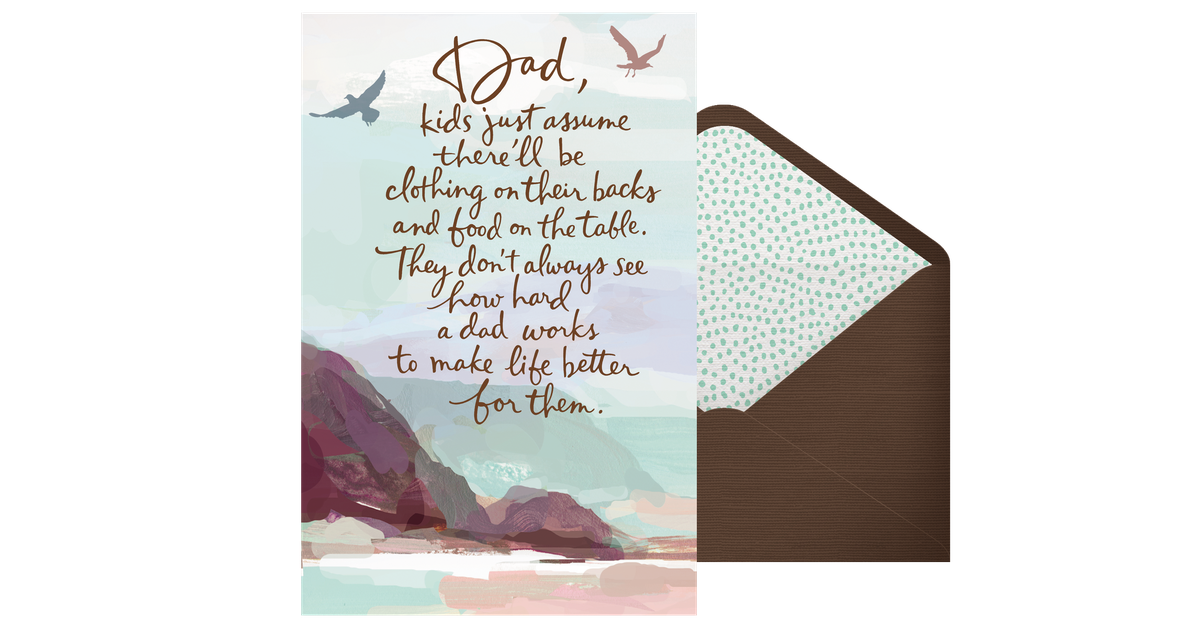 Dad,
kids just assume
there'll be
clothing on their backs
and food on the table.
They don't always see
how hard
a dad works
to make life better
for them.